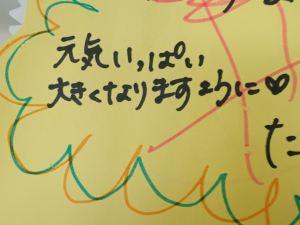 元気いっぱい
大きくなりますように♡
た